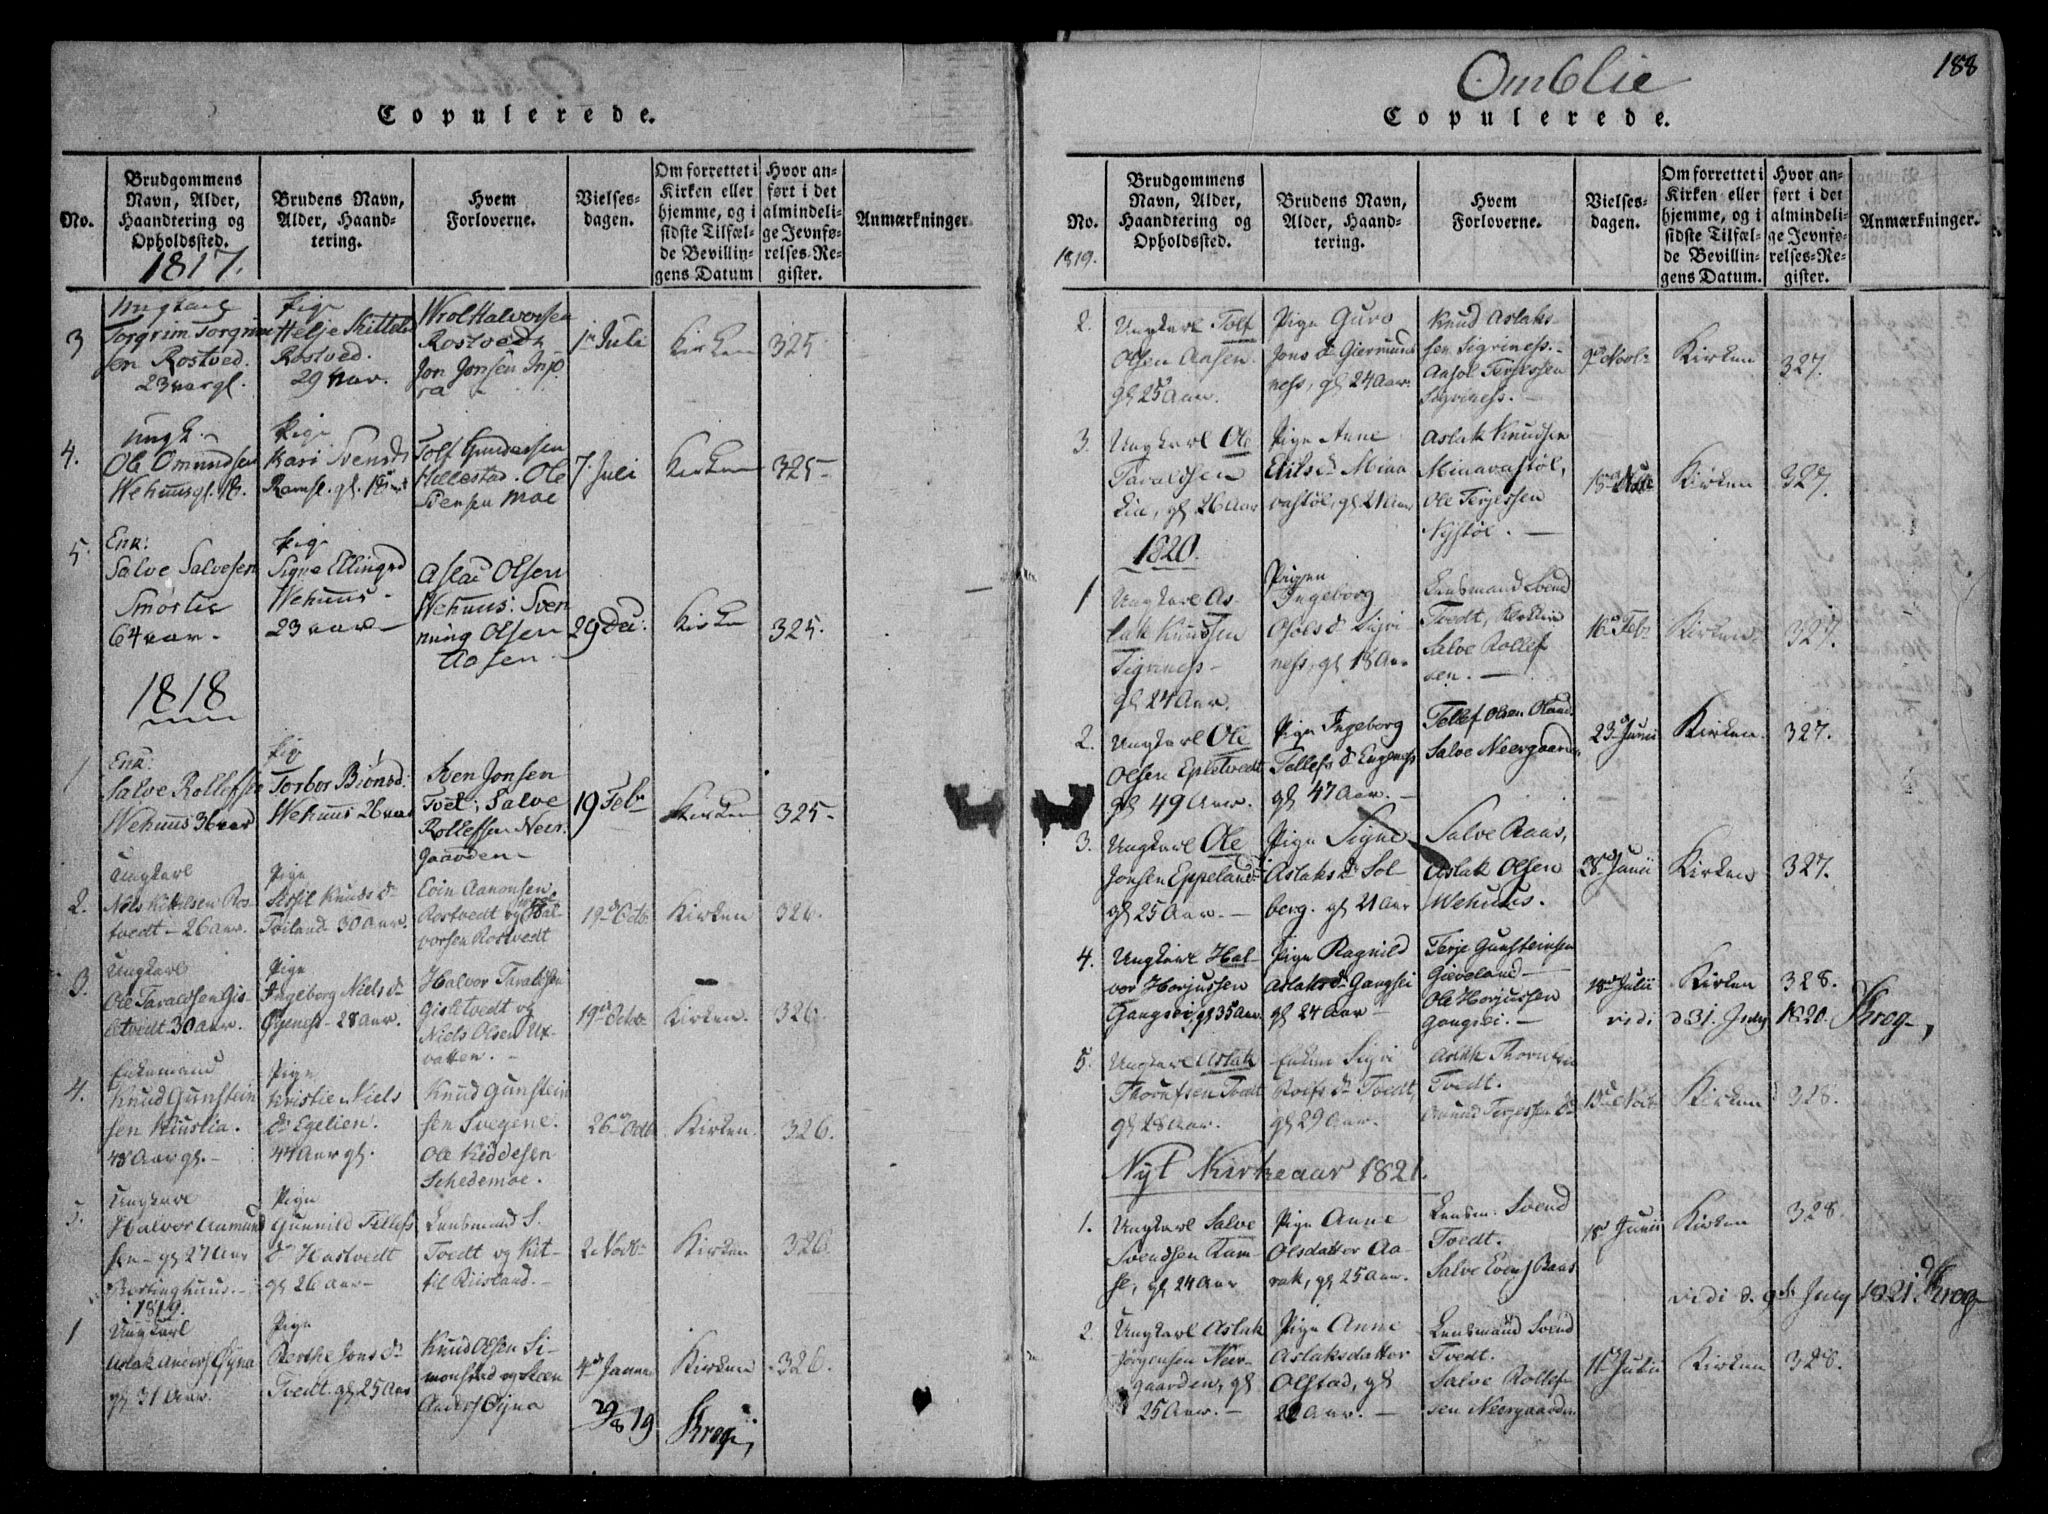 Copulerede.
No.
Brudgommens Navn, Alder, Haandtering og Opholdssted.
Brudens Navn, Alder, Haandtering.
Hvem Forloverne.
Vielsesdagen.
Om forrettet i Kirken eller hjemme, og i sidste Tilfælde Bevillingens Datum
Hvor anført i det almindelige Jevnførelses-Register.
Anmærkninger
1817.
3
Ungkarl
Torgrim Torgrim
sen Rostved.
23 aar gl.
Pige
Helje Kittelsd
Rostved.
29 aar.
Wrol Halvorsen
Rostvedt
Jon Jonsen
1 Juli
Kirken
325
4.
Ungk.
Ole Omundsen
Wehuus gl. 18.
Pige
Kari Svensd
gl. 18
Tolf Gundersen
Hillestad. Ole
Svensen Moe
7 Juli
Kirken
325
5.
Enk:
Salve Salvesen
Smörlie
64 aar
Pige
Signe Ellingsd
Wehuus
23 aar
Aslac Olsen
Wehuus: Sven
ning Olsen
Aasen
29 Dec:
Kirken
325.
1818
1
Enk:
Salve Rollefsen
Wehuus 36 aar
Pig
Torbor Biönsd:
Wehuus 26 aar
Sven Jonsen
Tvet, Salve
Rollefsen Neer
gaarden
19 Febr
Kirken
325
2.
Ungkarl
Nels Kittilsen Ros
tvedt 26 aar.
Pige
Sissil Knuds Dr
30 Aar.
Even Aanonsen
Rostvedt og Hal
vorsen Rostvedt
19de Octb
Kirken
326.
3.
Ungkarl
Ole Taraldsen Gis
letvedt 30 Aar.
Pige
Ingeborg Niels Dr
Öyeness 28 aar.
Halvor Taraldsen
Gisletvedt og
Niels Olsen Ux
vatten.
19de Octob
Kirken.
326
4.
Enkemand
Knud Gunstein
sen
48 Aar gl.
Pige
Kristie Niels
Dr Egelien.
47 Aar gl.
Knud Gunstein
sen Svegene.
Ole Kiddesen
Schedemoe.
26de Octb
Kirken.
326.
5.
Ungkarl
Halvor Aamund
sen gl 27 Aar
Pige
Gunnild Tellefs
Dr Hastvedt
gl 26 Aar
Lensmand S.
Tvedt og Kit
til Riisland.
2 Novb
Kirken
326
1819.
1
Ungkarl
Aslak Anders Öyna
gl 31 Aar.
Pige
Berthe Jons Dr
Tvedt. gl 25 Aar
Knud Olsen Si
monstad og
Anders Öyna
4de Januar
Kirken
326.
29/8 19
Krog
Omblie
188
Copulerede.
No.
Brudgommens Navn, Alder, Haandtering og Opholdssted.
Brudens Navn, Alder, Haandtering.
Hvem Forloverne.
Vielsesdagen.
Om forrettet i Kirken eller hjemme, og i sidste Tilfælde Bevillingens Datum.
Hvor anført i det almindelige Jevnførelses-Register.
Anmærkninger.
1819.
2.
Ungkarl Tolf
Olsen Aasen.
gl 25 Aar.
Pige Guro
Jons Dr Giermunds
ness, gl 24 Aar.
Knud Aslak
sen Sigriness.
Aasol Terjessen
Sigriness.
9de Novb
Kirken
327.
3.
Ungkarl Ole
Taraldsen
Lia, gl 26 Aar
Pige Anne
Eriks Dr Mina
vastöl, gl 21 Aar
Aslak Knudsen
Minavastöl,
Ole Terjessen
Nystöl.
Kirken
327.
1820.
1
Ungkarl As
lak Knudsen
Sigriness
gl 24 Aar.
Pigen
Ingeborg
Osols Dr Sigri
ness, gl 18 Aar
Lensmand Svend
Tvedt,
Salve Rollef
sen.
16de Febr
Kirken
327.
2.
Ungkarl Ole
Olsen Epletvedt
gl 49 Aar.
Pige Ingeborg
Tellefs Dr Engeness
gl 47 Aar.
Tellef Olsen
Salve Neergaarden
23de Junii
Kirken.
327.
3.
Ungkarl Ole
Jonsen Eppeland
gl 25 Aar.
Pige Signe
Aslaks Dr Sol
berg. gl 21 Aar
Salve Raas,
Aslak Olsen
Wehuus.
28de Junii
Kirken
327.
4.
Ungkarl Hal
vor Horjussen
Gangsei, gl 35 Aar.
Pige Ragnild
Aslaks Dr Gangsei
gl 24 Aar
Terje Gunsteinsen
Gieveland
Ole Horjussen
Gangsei.
18de Julii
Kirken
328.
vidi d 31. July 1820. Krog,
5.
Ungkarl Aslak
Thorufsen Tvedt
gl 28 Aar.
Enken Sigri
Roifs Dr Tvedt,
gl 29 Aar.
Aslak
Tvedt.
Omund Terjessen
13de Novb
Kirken
328.
Nyt Kirkeaar 1821.
1.
Ungkarl Salve
Svendsen Ram
se, gl 24 Aar
Pige Anne
Olsdatter Aa
rak, gl 25 Aar.
Lensm. Svend
Tvedt.
Salve Evens Raas
18de Junii
Kirken
328.
vidi d. 9de July 1821. Krog
2.
Ungkarl Aslak
Jörgensen Neer
gaarden, gl
25 Aar.
Pige Anne
Aslaksdatter
Olstad, gl
22 Aar.
Lensmand Svend
Tvedt.
Salve Rollef
sen Neergaarden
11te Julii
Kirken
328.